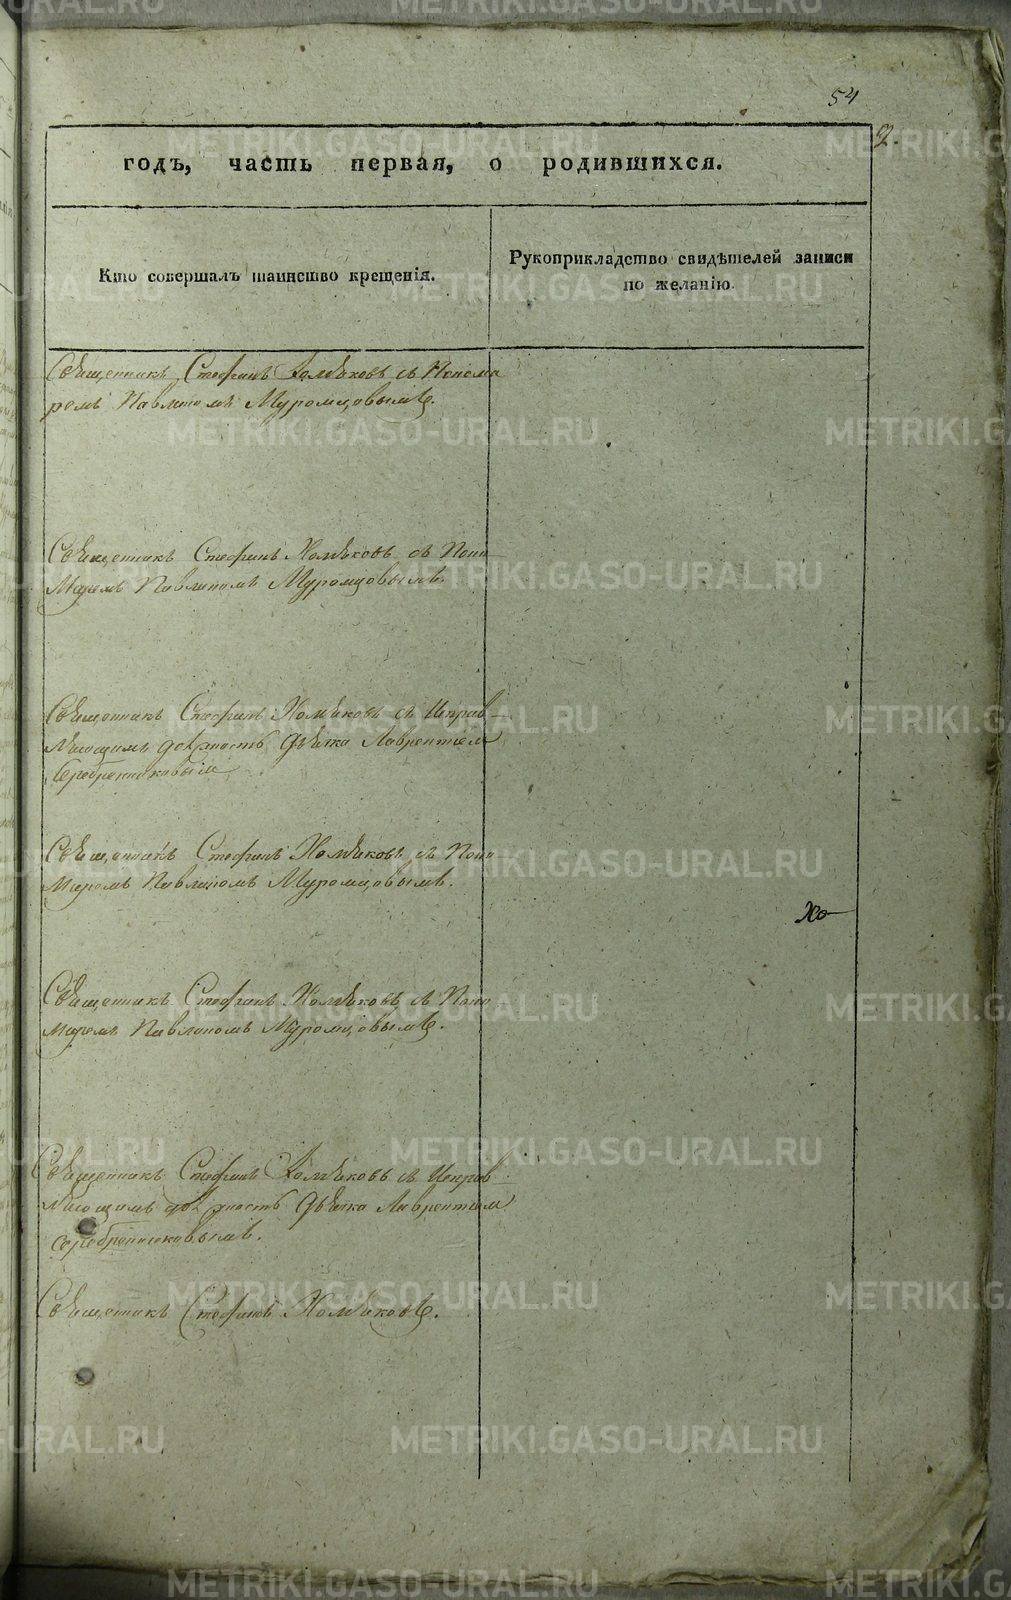 54
2.
годъ, часть первая, о родившихся.
Кто совершалъ таинство крещенія.
Рукоприкладство свидѣтелей записи
по желанію.
Священникъ Стефанъ Хомѣковъ съ Понома
ремъ Павлиномъ Муромцовымъ.
Священникъ Стефанъ Хомѣковъ съ Поно
маремъ Павлиномъ Муромцовымъ.
Священникъ Стефанъ Хомѣковъ съ Исправ
ляющимъ должность дьячка Лаврентіем
Серебрениковым
Священникъ Стефанъ Хомѣковъ съ Поно
маремъ Павлиномъ Муромцовымъ.
Хо
Священникъ Стефанъ Хомѣковъ съ Поно
маремъ Павлиномъ Муромцовымъ.
Священникъ Стефанъ Хомѣковъ съ Исправ
ляющимъ должность дьячка Лаврентіем
Серебрениковымъ.
Священникъ Стефанъ Хомѣковъ.
METRIKI.GASO-URAL.RU